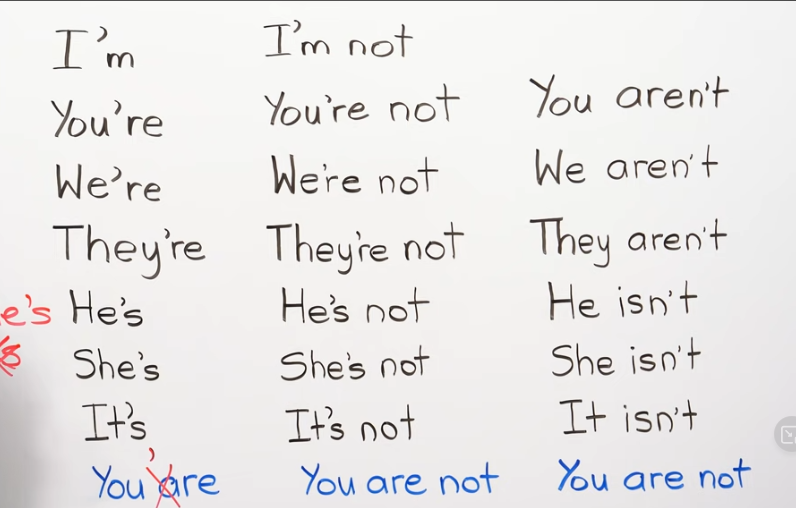 I'm I'm not
You're You're not You aren't
We're We're not We aren't
They're They're not They aren't
e's He's He's not He isn't
She's She's not She isn't
It's It's not It isn't
You are You are not You are not